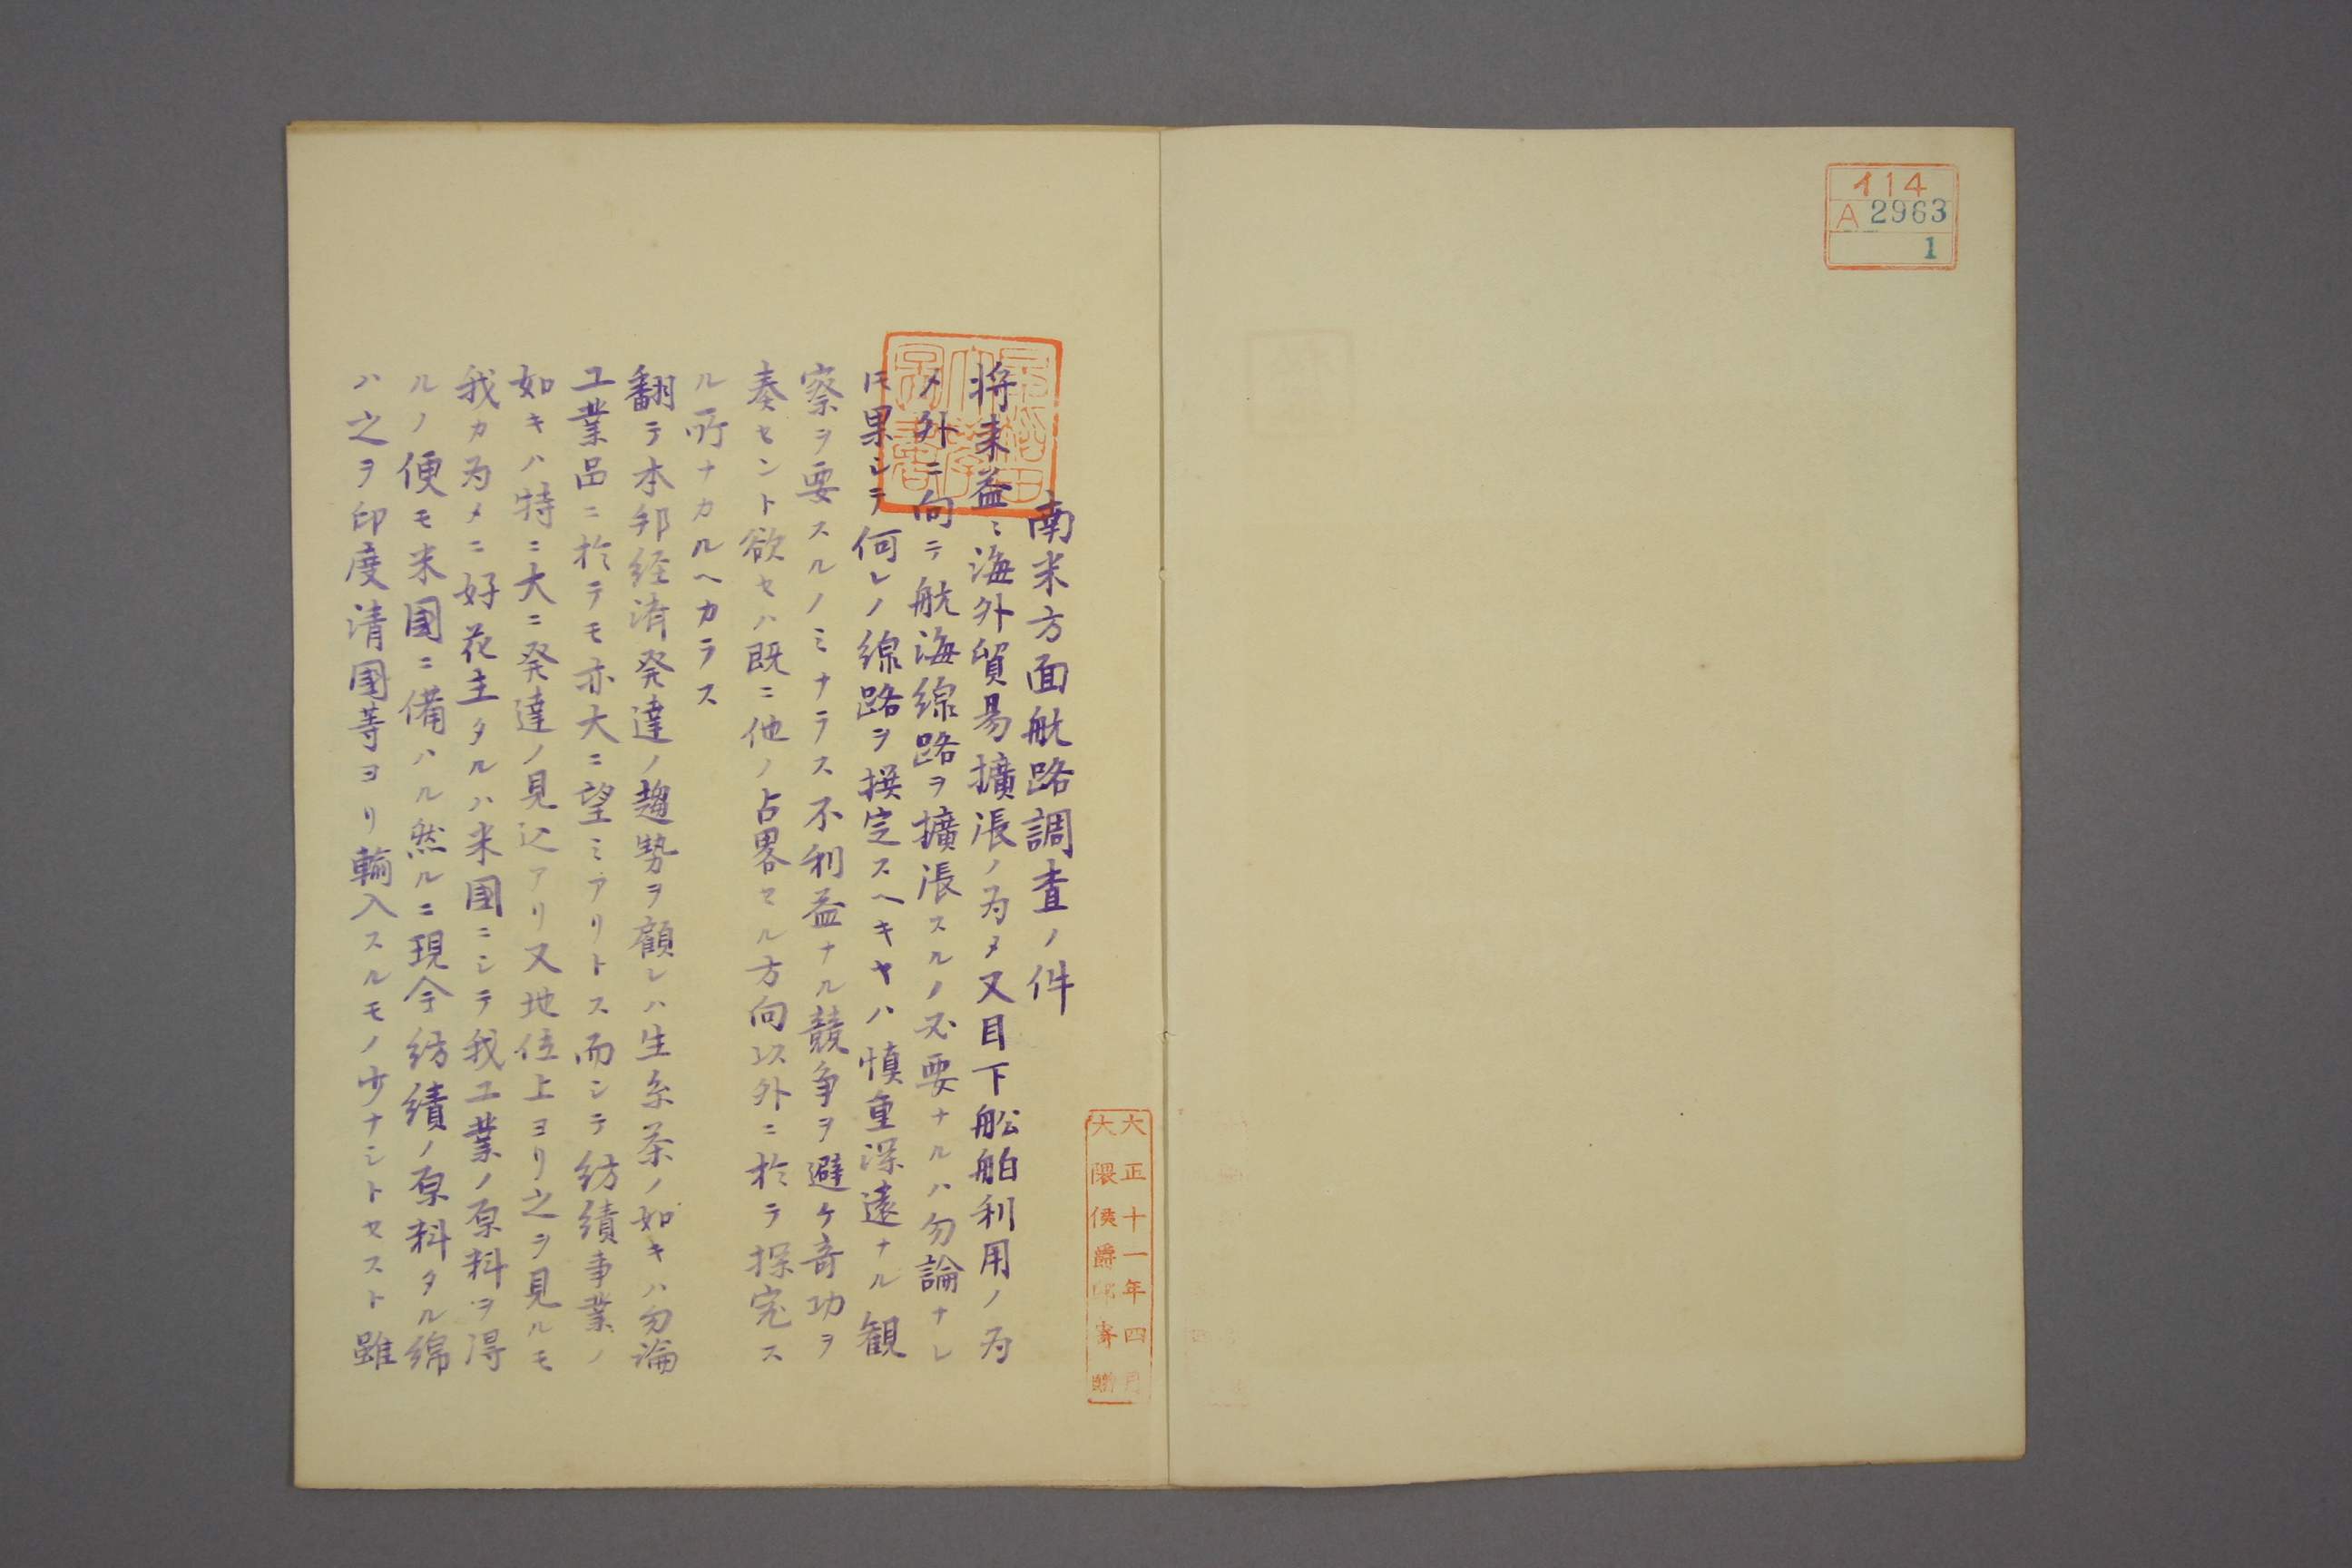 イ14
A 2963
1
大正十一年四月
大隈侯爵邸寄贈
早稲田大学図書
南米方面航路調査ノ件
将来益〻海外貿易擴張ノ為メ又目下舩舶利用ノ為
メ外ニ向テ航海線路ヲ擴張スルノ必要ナルハ勿論ナレ
𪜈果シテ何レノ線路ヲ撰定スヘキヤハ慎重深遠ナル観
察ヲ要スルノミナラス不利益ナル競争ヲ避ケ奇功ヲ
奏セント欲セハ既ニ他ノ占畧セル方向以外ニ於テ探究ス
ル所ナカルヘカラス
翻テ本邦経済発達ノ趨勢ヲ顧レハ生糸茶ノ如キハ勿論
工業品ニ於テモ亦大ニ望ミアリトス而シテ紡績事業ノ
如キハ特ニ大ニ発達ノ見込アリ又地位上ヨリ之ヲ見ルモ
我カ為メニ好花主タルハ米國ニシテ我工業ノ原料ヲ得
ルノ便モ米國ニ備ハル然ルニ現今紡績ノ原料タル綿
ハ之ヲ印度清國等ヨリ輸入スルモノ少ナシトセスト雖